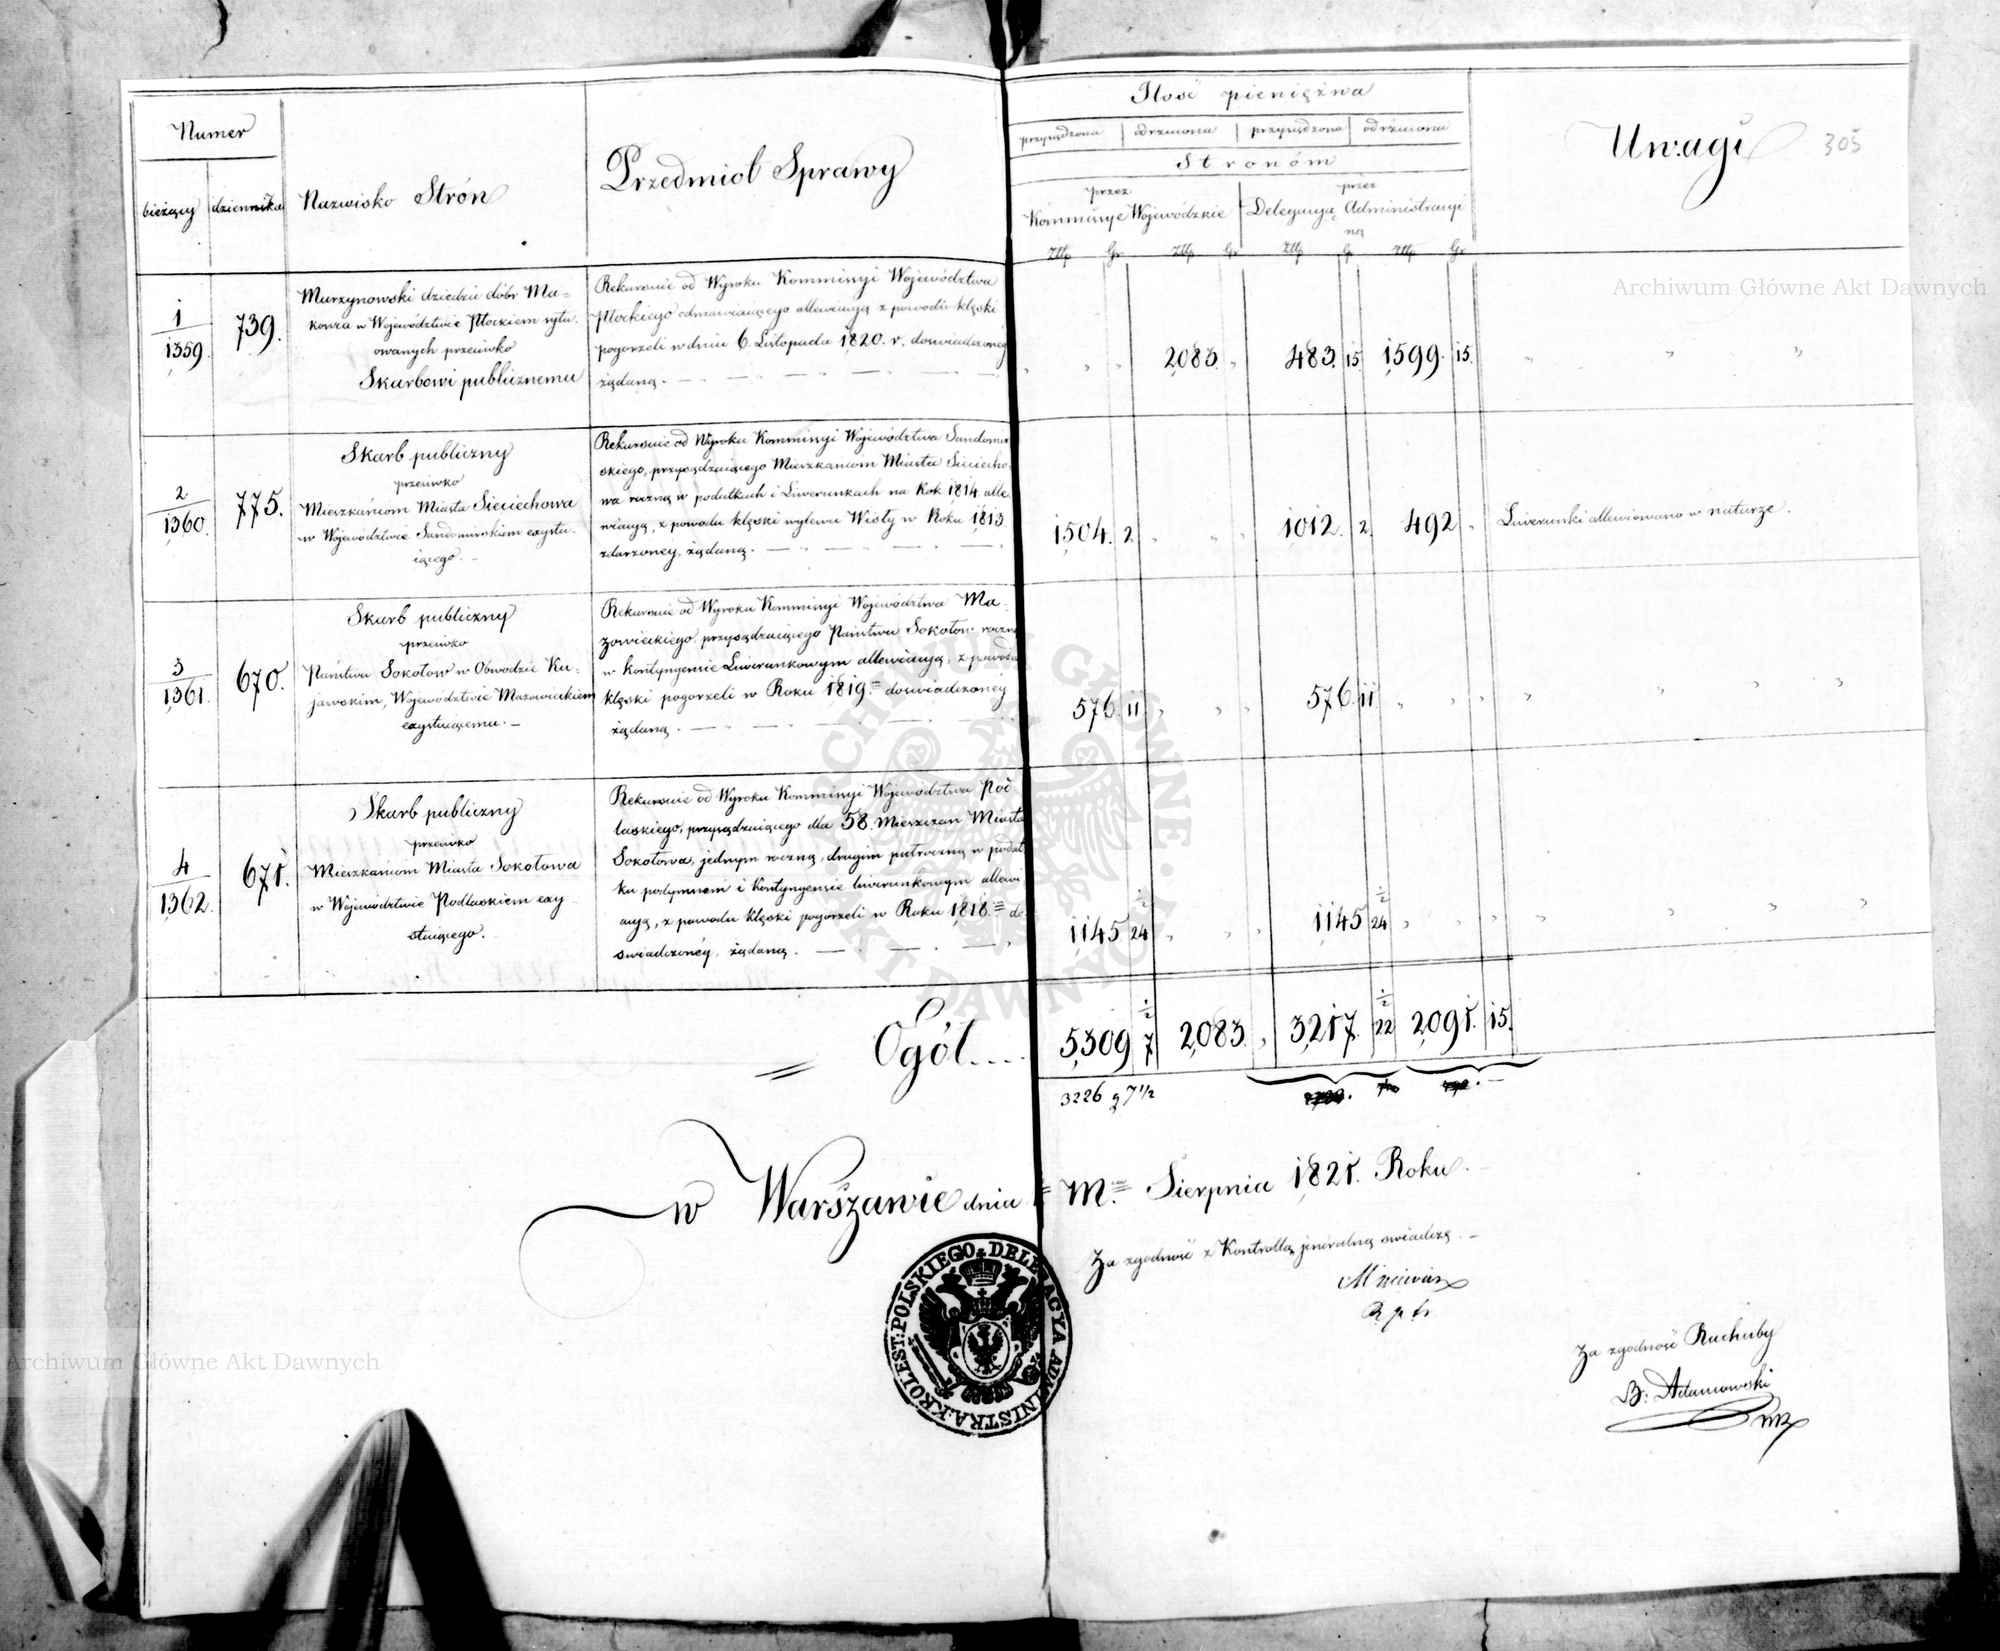 Numer
bieżący dziennika
Nazwisko Strón
Przedmiot Sprawy
Ilość pieniężna
przysądzona odrzucona przysądzona odrzucona
Stronóm
przez przez
Kommissye Wojewódzkie Delegacyą Administracyi
ną
Złp Gr Złp Gr Złp Gr Złp Gr
Uwagi
305
1
1359.
739.
Murzynowski dziedzic dóbr Ma=
kowca w Województwie Płockiem sytu.
owanych przeciwko
Skarbowi publicznemu
Rekursuie od Wyroku Kommissyi Województwa
Płockiego odmawiaiącego allewiacyą z powodu klęski
pogorzeli w dniu 6. Listopada 1820. r. doświadczoney
żądaną.
2083. 483. 15 1599. 15.
2
1360.
775.
Skarb publiczny
przeciwko
Mieszkańcom Miasta Sieciechowa
w Województwie Sandomirskiem exystu.
iącego.
Rekursuie od Wyroku Kommissyi Województwa Sandomir
skiego, przysądzaiącego Mieszkańcom Miasta Sieciecho
wa roczną w podatkach i Liwerunkach na Rok 1814 alle
wiacyą, z powodu klęski wylewu Wisły w Roku 1813
zdarzoney, żądaną.
1504. 2 1012. 2. 492
Liwerunki allewiowano w naturze.
3
1361.
670.
Skarb publiczny
przeciwko
Państwu Sokołow w Obwodzie Ku=
jawskim, Województwie Mazowieckiem
exystuiącemu.
Rekursuie od Wyroku Kommissyi Województwa Ma=
zowieckiego, przysądzaiącego Państwu Sokołow roczną
w kontyngensie Liwerunkowym allewiacyą, z powodu
klęski pogorzeli w Roku 1819. doświadczoney
żądaną.
576. 11 576. 11
4
1362.
671.
Skarb publiczny
przeciwko
Mieszkańcom Miasta Sokołowa
w Województwie Podlaskiem exy
stuiącego.
Rekursuie od Wyroku Kommissyi Województwa Pod
laskiego, przysądzaiącego dla 58. Mieszczan Miasta
Sokołowa, jednym roczną, drugim półroczną w podat
ku podymnem i kontyngensie liwerunkowym allewi
acyą, z powodu klęski pogorzeli w Roku 1818. do
świadczoney, żądaną.
1145 24 1/2 1145 24 1/2
Ogół....
5309 7 1/2 2083. 3217. 22 1/2 2091. 15.
3226 g 7 1/2
w Warszawie dnia Sierpnia 1821. Roku.
Za zgodność z Kontrollą jeneralną świadczę.
Za zgodność Rachuby
B: Adamowski
KROLEST: POLSKIEGO DELEGACYA ADMINISTRA:
ARCHIWUM GŁÓWNE AKT DAWNYCH
Archiwum Główne Akt Dawnych
Archiwum Główne Akt Dawnych